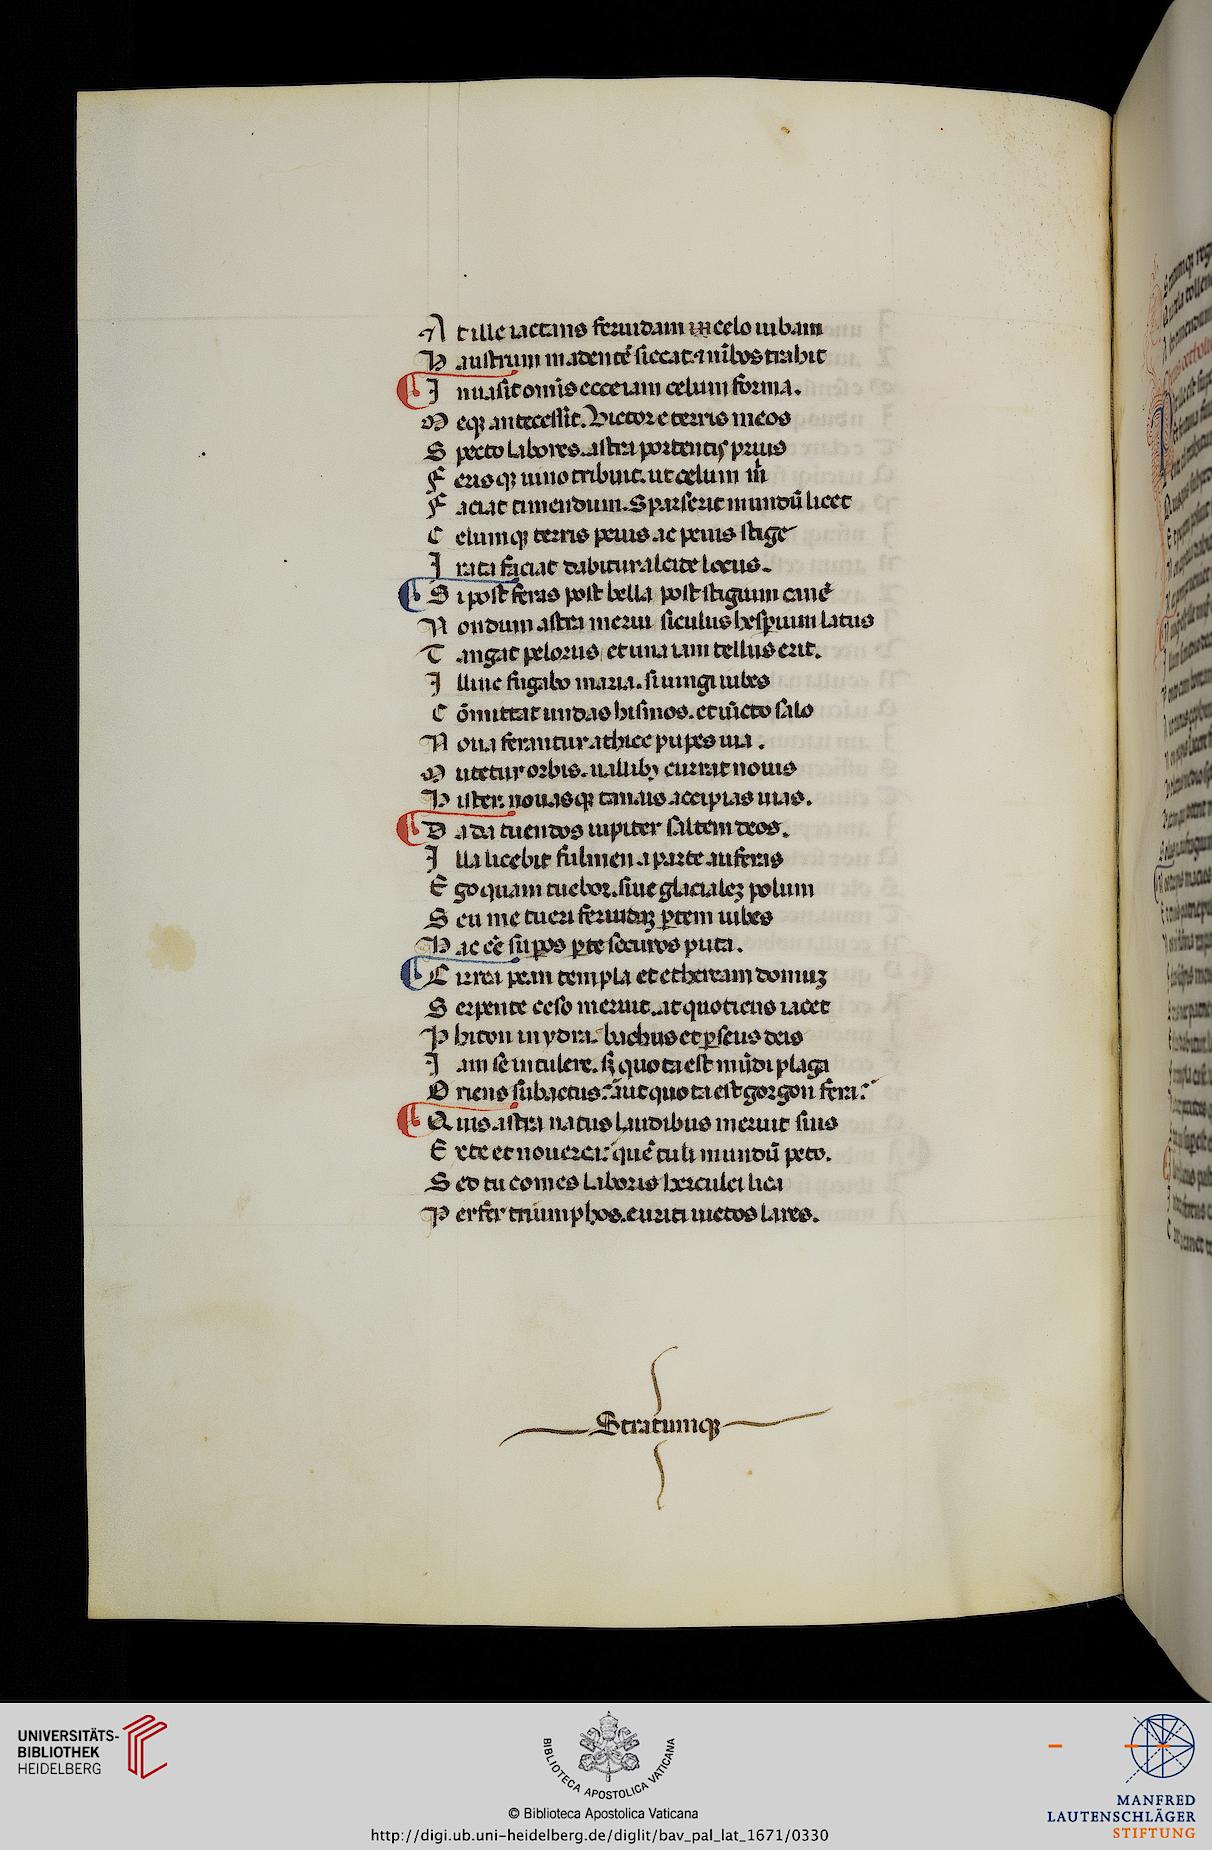 A t ille iactans feruidam in celo iubam
H austrum madentē siccat ⁊ nībos trahit
I nuasit omīs ecce iam celum forma.
M eqꝫ antecessit. Victor e terris meos
S pecto labores. astra portentis prius
F erasqꝫ iuno tribuit. ut celum m̄
F aciat timendum. Sparserit mundū licet
C elumqꝫ terris peius ac peius stige
I rata faciat dabitur alcide locus.
S i post feras post bella post stigium canē
N ondum astra merui siculus hesperium latus
T angat pelorus et una iam tellus erit.
I lline fugabo maria. si iungi iubes
C ōmittat undas hismos. et iūcto salo
N oua ferantur athice pupes uia.
M utetur orbis. uallibꝫ currat nouis
H ister. nouasqꝫ tanais accipias uias.
D a da tuendos iupiter saltem deos.
I lla licebit fulmen a parte auferas
E go quam tuebor. siue glacialeꝫ polum
S eu me tueri feruidaꝫ ꝑtem iubes
H ac eē suꝑos ꝑte securos puta.
C irrea pean templa et etheream domuꝫ
S erpente ceso meruit. at quotiens iacet
P hiton in ydra. bachus et ꝑseus deis
I am se intulere. sꝫ quota est mūdi plaga
O riens subactus. aut quota est gorgon fera.
Q uis astra natus laudibus meruit suis
E x te et nouerca. quē tuli mundū peto.
S ed tu comes laboris herculei lica
P erfer triumphos. euriti uictos lares.
Stratumqꝫ
UNIVERSITÄTS-
BIBLIOTHEK
HEIDELBERG
BIBLIOTECA APOSTOLICA VATICANA
© Biblioteca Apostolica Vaticana
http://digi.ub.uni-heidelberg.de/diglit/bav_pal_lat_1671/0330
MANFRED
LAUTENSCHLÄGER
STIFTUNG